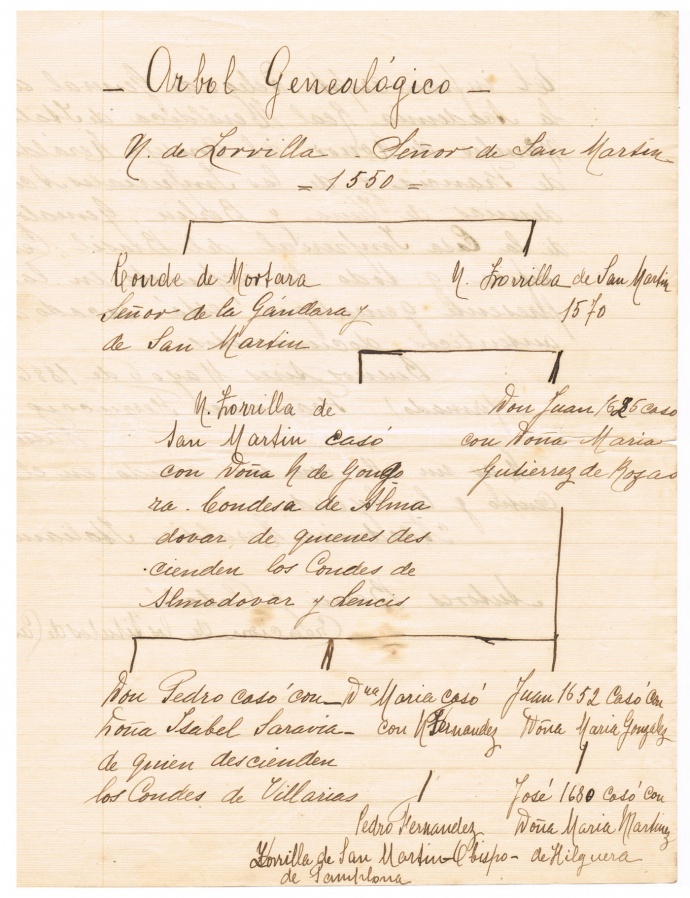 - Arbol Genealógico -
N. de Zorrilla . Señor de San Martin
= 1550 =
Conde de Mortara
Señor de la Gándara y
de San Martin
N. Zorrilla de San Martin
1570
N. Zorrilla de
San Martin casó
con Doña N de Gongo
ra . Condesa de Alma
dovar de quienes des
cienden los Condes de
Almodovar y
Don Juan 1625 caso
con Doña Maria
Gutierrez de Rozas
Don Pedro casó con
Doña Isabel Saravia -
de quien descienden
los Condes de Villarias
Dña Maria casó
con N Fernandez
Pedro Fernandez
Zorrilla de San Martin - Obispo -
de Pamplona
Juan 1652 casó con
Doña Maria Gonzalez
José 1680 casó con
Doña Maria Martinez
de Hilguera